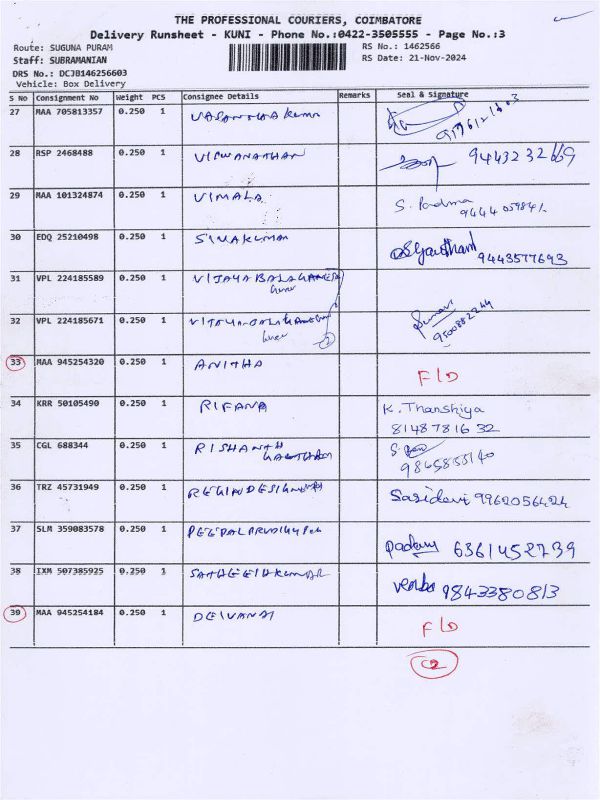 THE PROFESSIONAL COURIERS, COIMBATORE
Delivery Runsheet - KUNI - Phone No.:0422-3505555 - Page No.:3
Route: SUGUNA PURAM
RS No.: 1462566
Staff: SUBRAMANIAN
RS Date: 21-Nov-2024
DRS No.: DCJB146256603
Vehicle: Box Delivery
S No Consignment No Weight PCS Consignee Details Remarks Seal & Signature
27 MAA 705813357 0.250 1
28 RSP 2468488 0.250 1 VISWANATHAN 9443232669
29 MAA 101324874 0.250 1 VIMALA S. Padma
30 EDQ 25210498 0.250 1 SIVAKUMAR 9443577693
31 VPL 224185589 0.250 1
32 VPL 224185671 0.250 1 9500882244
33 MAA 945254320 0.250 1 ANITHA F/D
34 KRR 50105490 0.250 1 RIFANA K. Thanshiya
8148781632
35 CGL 688344 0.250 1 RISHANTH
GAUTHAM
36 TRZ 45731949 0.250 1 Sasidevi 9962056424
37 SLM 359083578 0.250 1 6361452739
38 IXM 507385925 0.250 1 SATHEESHKUMAR 9843380813
39 MAA 945254184 0.250 1 DEIVANAI F/D